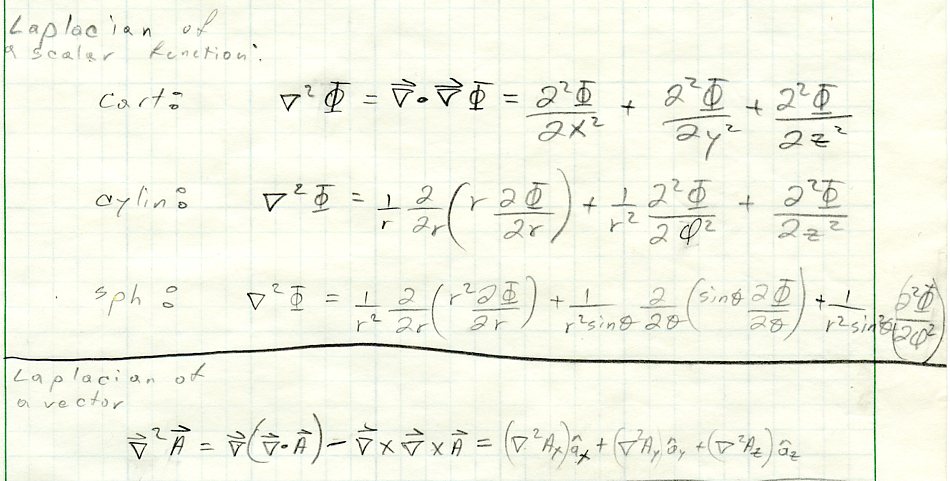 Laplacian of
a scalar function:
cart: ∇²Φ = ∇⃗•∇⃗Φ = ∂²Φ/∂x² + ∂²Φ/∂y² + ∂²Φ/∂z²
cylin: ∇²Φ = 1/r ∂/∂r (r ∂Φ/∂r) + 1/r² ∂²Φ/∂φ² + ∂²Φ/∂z²
sph: ∇²Φ = 1/r² ∂/∂r (r²∂Φ/∂r) + 1/(r² sinθ) ∂/∂θ (sinθ ∂Φ/∂θ) + 1/(r² sin²θ) (∂²Φ/∂φ²)
Laplacian of
a vector
∇⃗²A⃗ = ∇⃗(∇⃗•A⃗) − ∇⃗×∇⃗×A⃗ = (∇²Aₓ)âₓ + (∇²A_y)â_y + (∇²A_z)â_z